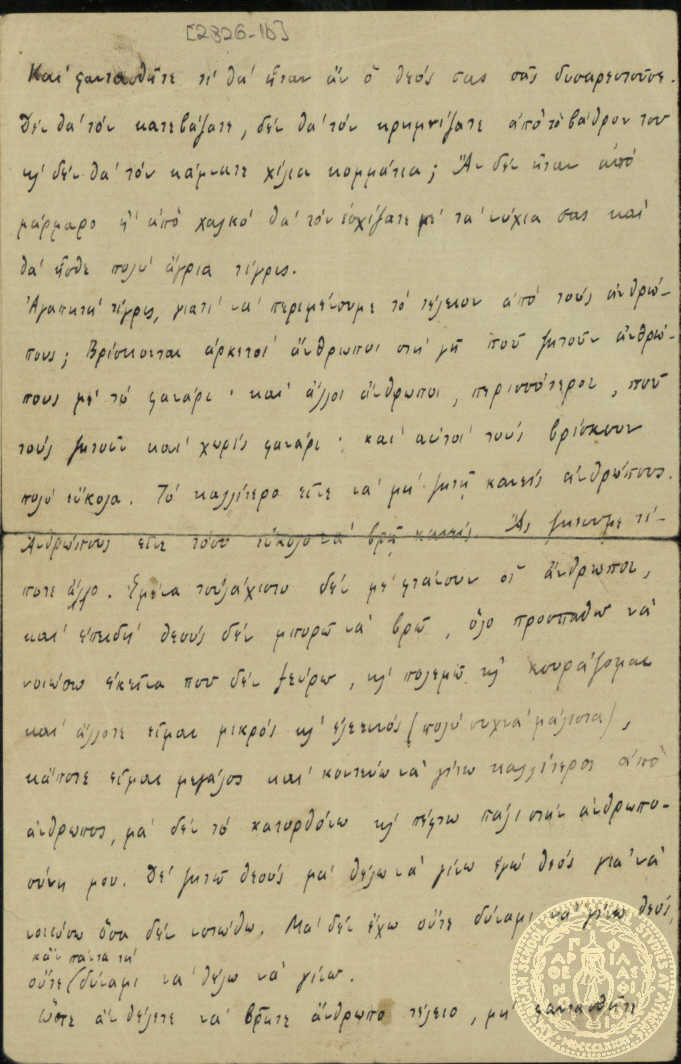 [2326-1b]
Καὶ φαντασθῆτε τί θὰ ἦταν ἂν ὁ θεός σας σᾶς δυσαρεστοῦσε.
Δὲν θὰ τὸν κατεβάζατε, δὲν θὰ τὸν κρημνίζατε ἀπὸ τὸ βάθρον του
κι̉ δὲν θὰ τὸν κάμνατε χίλια κομμάτια; Ἂν δὲν ἦταν ἀπὸ
μάρμαρο ἢ ἀπὸ χαλκὸ θὰ τὸν ἐσχίζατε μὲ τὰ νύχια σας καὶ
θὰ ἦσθε πολὺ ἄγρια τίγρις.
Ἀγαπητὰ τίγρις, γιατί νὰ περιμένουμε τὸ τέλειον ἀπὸ τοὺς ἀνθρώ-
πους; Βρίσκονται ἀρκετοὶ ἄνθρωποι στὴ γῆ ποῦ ζητοῦν ἀνθρώ-
πους μὲ τὸ φανάρι · καὶ ἄλλοι ἄνθρωποι, περισσότεροι, ποῦ
τοὺς ζητοῦν καὶ χωρὶς φανάρι · καὶ αὐτοὶ τοὺς βρίσκουν
πολὺ εὔκολα. Τὸ καλλίτερο εἶνε νὰ μὴ ζητῇ κανεὶς ἀνθρώπους.
Ἀνθρώπους εἶνε τόσο εὔκολο νὰ βρῇ κανείς. Ἂς ζητοῦμε τί-
ποτε ἄλλο. Ἐμένα τουλάχιστο δὲν μὲ φταίουν οἱ ἄνθρωποι,
καὶ ἐπειδὴ θεοὺς δὲν μπορῶ νὰ βρῶ, ὅλο προσπαθῶ νὰ
νοιώσω ἐκεῖνα ποὺ δὲν ξεύρω, κι̉ πολεμῶ κι̉ κουράζομαι
καὶ ἄλλοτε εἶμαι μικρὸς κι̉ ἐλεεινός (πολὺ συχνὰ μάλιστα),
κάποτε εἶμαι μεγάλος καὶ κοντεύω νὰ γίνω καλλίτερος ἀπὸ
ἄνθρωπος, μὰ δὲν τὸ κατορθόνω κι̉ πέφτω πάλι στὴν ἀνθρωπο-
σύνη μου. Δὲ ζητῶ θεοὺς μὰ θέλω νὰ γίνω ἐγὼ θεὸς γιὰ νὰ
νοιώσω ὅσα δὲν νοιώθω. Μὰ δὲν ἔχω οὔτε δύναμι νὰ γίνω θεός,
κἂν πάντα τὴ
οὔτε (δύναμι νὰ θέλω νὰ γίνω.
Ὥστε ἂν θέλετε νὰ βρῆτε ἄνθρωπο τέλειο, μὴ φαντασθῆτε
AMERICAN SCHOOL OF CLASSICAL STUDIES AT ATHENS
MDCCCLXXXI